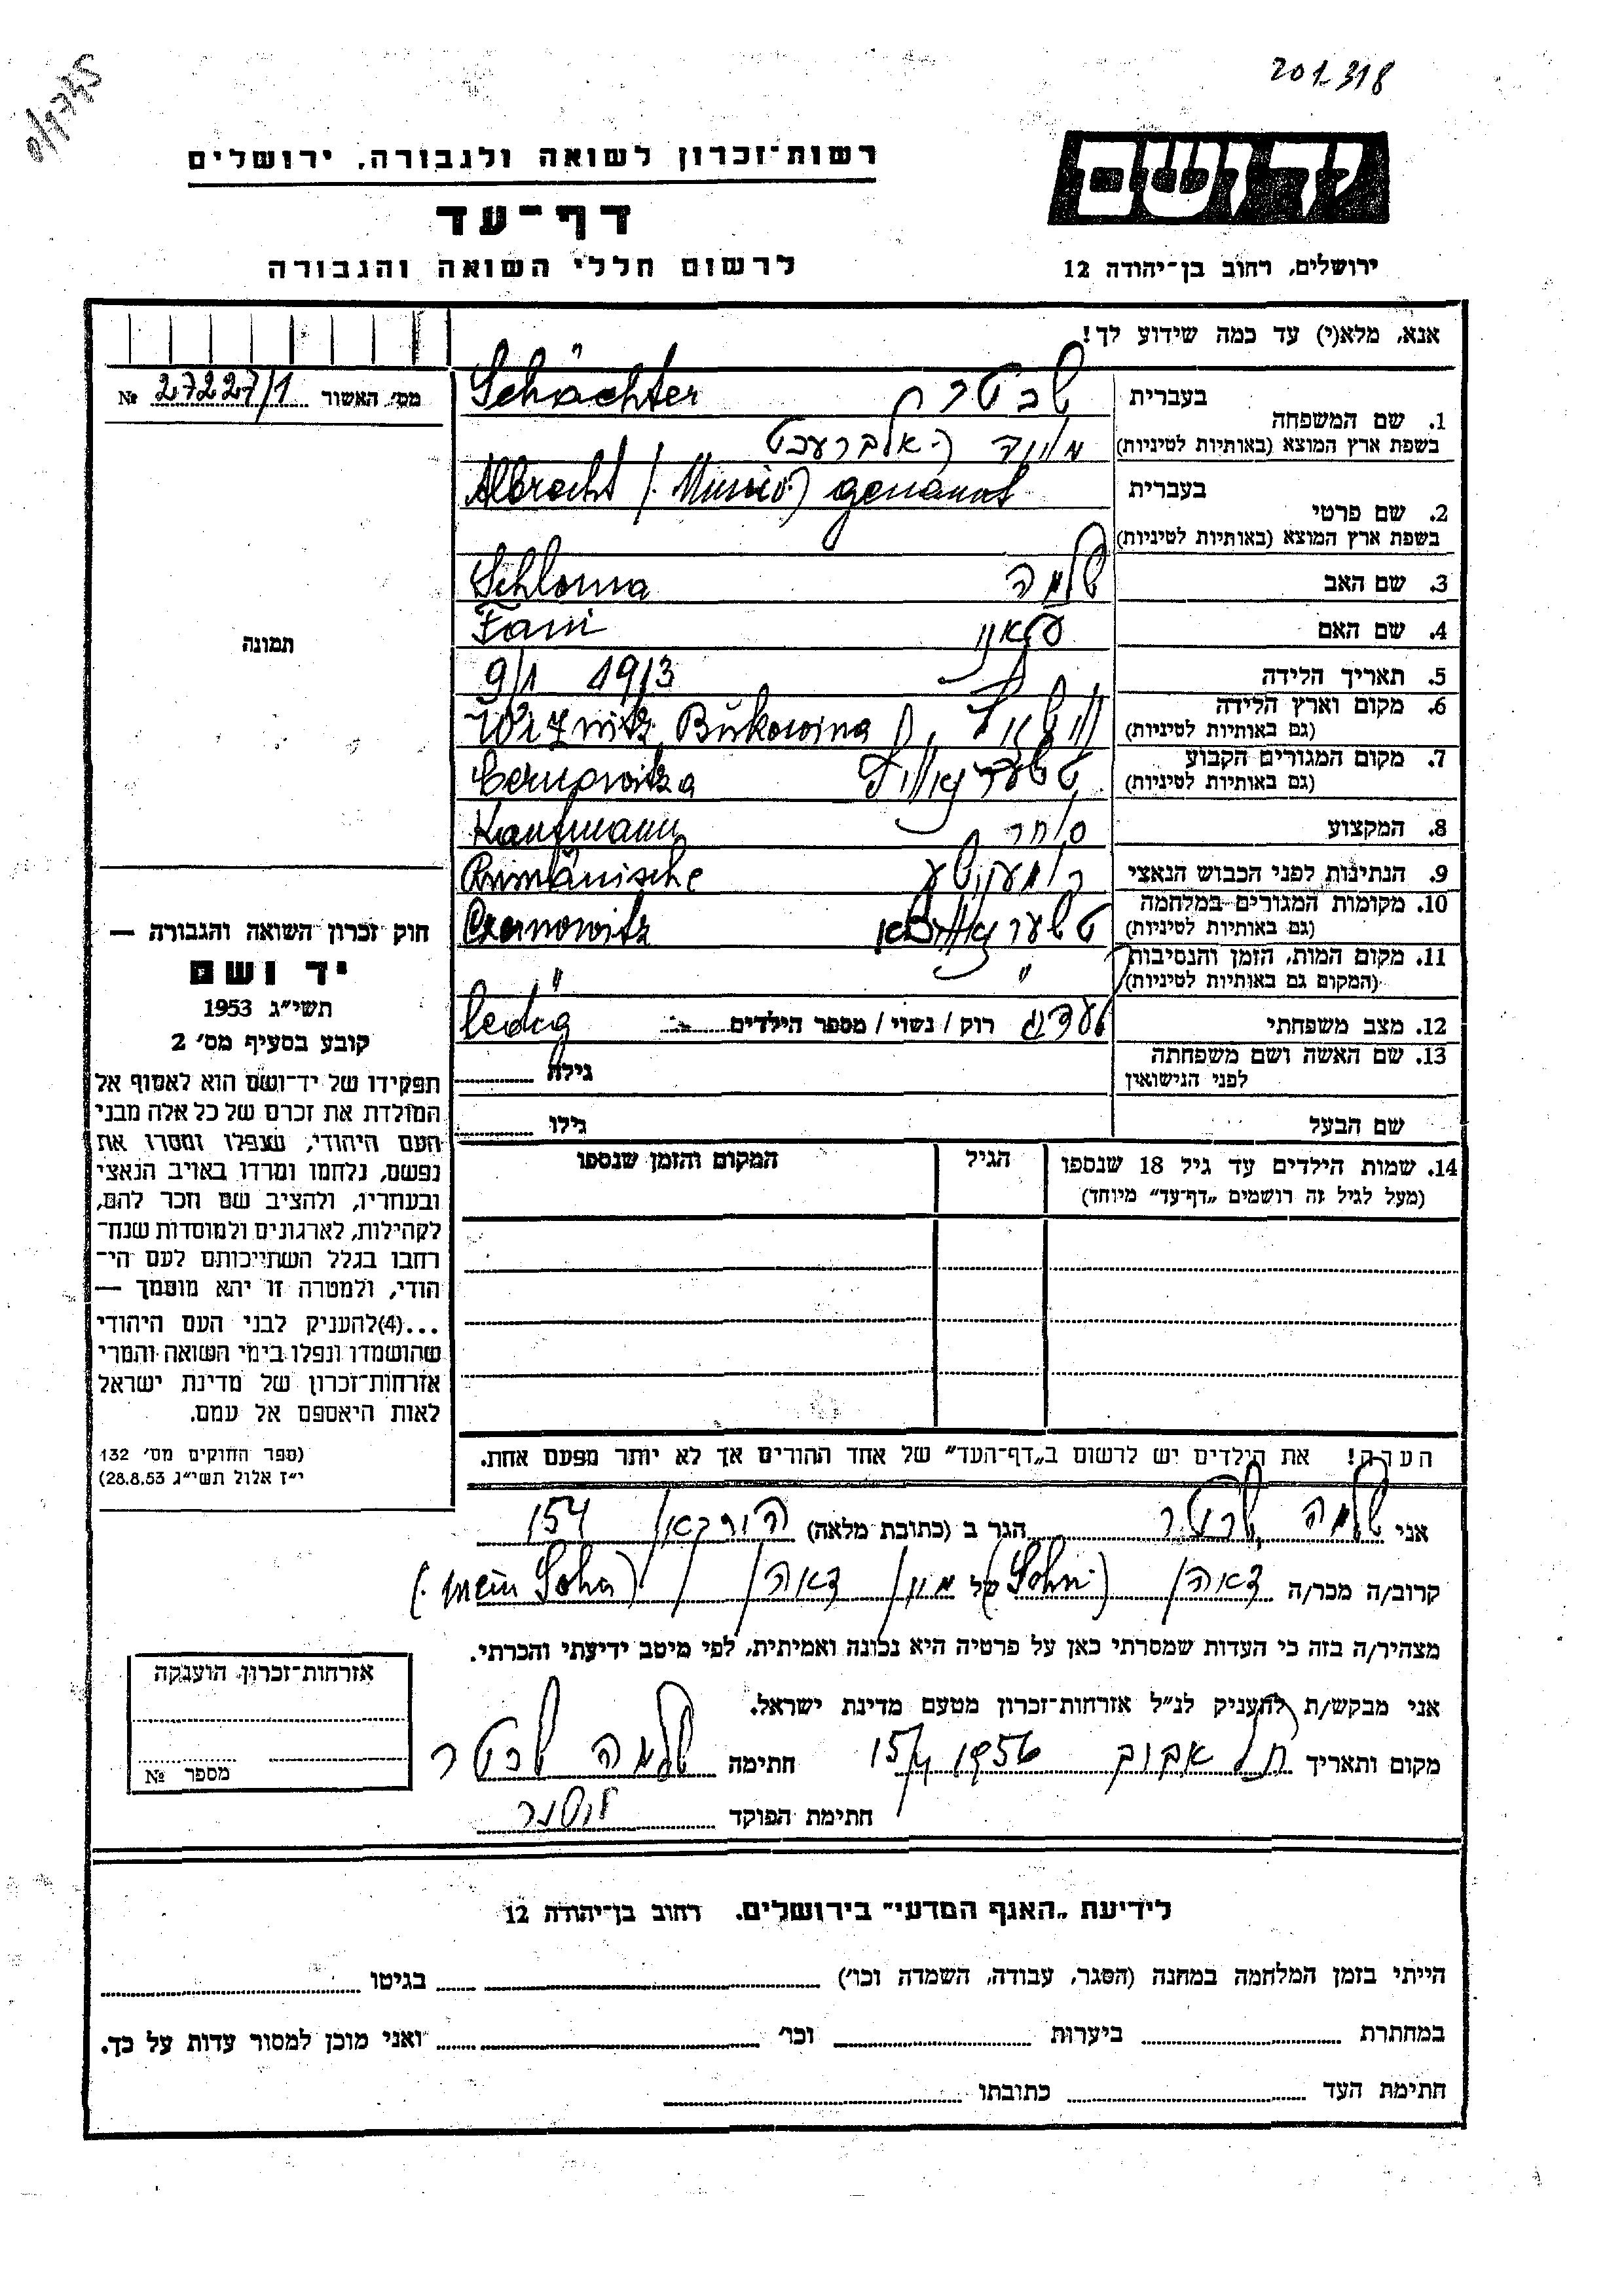 201318
רשות-זכרון לשואה ולגבורה, ירושלים
יד ושם
דף-עד
לרשום חללי השואה והגבורה
ירושלים, רחוב בן-יהודה 12
אנא, מלא(י) עד כמה שידוע לך!
מס׳ האשור 27227/1 №
תמונה
1. שם המשפחה
בעברית שכטר
בשפת ארץ המוצא (באותיות לטיניות) Schächter
2. שם פרטי
בעברית אלברעכט
בשפת ארץ המוצא (באותיות לטיניות) Albracht genannt
3. שם האב שלמה Schloma
4. שם האם Fani
5. תאריך הלידה 9/1 1913
6. מקום וארץ הלידה
(גם באותיות לטיניות) Bukowina
7. מקום המגורים הקבוע
(גם באותיות לטיניות)
8. המקצוע סוחר Kaufmann
9. הנתינות לפני הכבוש הנאצי Rumänische
10. מקומות המגורים במלחמה
(גם באותיות לטיניות) Czernowitz
11. מקום המות, הזמן והנסיבות
(המקום גם באותיות לטיניות) " "
12. מצב משפחתי לעדיג רוק / נשוי / מספר הילדים ledig
13. שם האשה ושם משפחתה
לפני הנישואין גילה
שם הבעל גילו
14. שמות הילדים עד גיל 18 שנספו הגיל המקום והזמן שנספו
(מעל לגיל זה רושמים „דף-עד״ מיוחד)
חוק זכרון השואה והגבורה —
יד ושם
תשי״ג 1953
קובע בסעיף מס׳ 2
תפקידו של יד-ושם הוא לאסוף אל
המולדת את זכרם של כל אלה מבני
העם היהודי, שנפלו ומסרו את
נפשם, נלחמו ומרדו באויב הנאצי
ובעוזריו, ולהציב שם וזכר להם,
לקהילות, לארגונים ולמוסדות שנח-
רבו בגלל השתייכותם לעם הי-
הודי, ולמטרה זו יהא מוסמך —
...(4)להעניק לבני העם היהודי
שהושמדו ונפלו בימי השואה והמרי
אזרחות-זכרון של מדינת ישראל
לאות היאספם אל עמם.
(ספר החוקים מס׳ 132
י״ז אלול תשי״ג 28.8.53)
הערה! את הילדים יש לרשום ב„דף-העד״ של אחד ההורים אך לא יותר מפעם אחת.
אני שלמה שכטר הגר ב (כתובת מלאה) 154
קרוב/ה מכר/ה זאהן (Sohn) של מיין זאהן (mein Sohn)
מצהיר/ה בזה כי העדות שמסרתי כאן על פרטיה היא נכונה ואמיתית, לפי מיטב ידיעתי והכרתי.
אני מבקש/ת להעניק לנ״ל אזרחות-זכרון מטעם מדינת ישראל.
מקום ותאריך תל אביב 1956 חתימה שלמה שכטר
חתימת הפוקד
אזרחות-זכרון הוענקה
מספר №
לידיעת „האגף המדעי״ בירושלים. רחוב בן-יהודה 12
הייתי בזמן המלחמה במחנה (הסגר, עבודה, השמדה וכו׳) בגיטו
במחתרת ביערות וכו׳ ואני מוכן למסור עדות על כך.
חתימת העד כתובתו